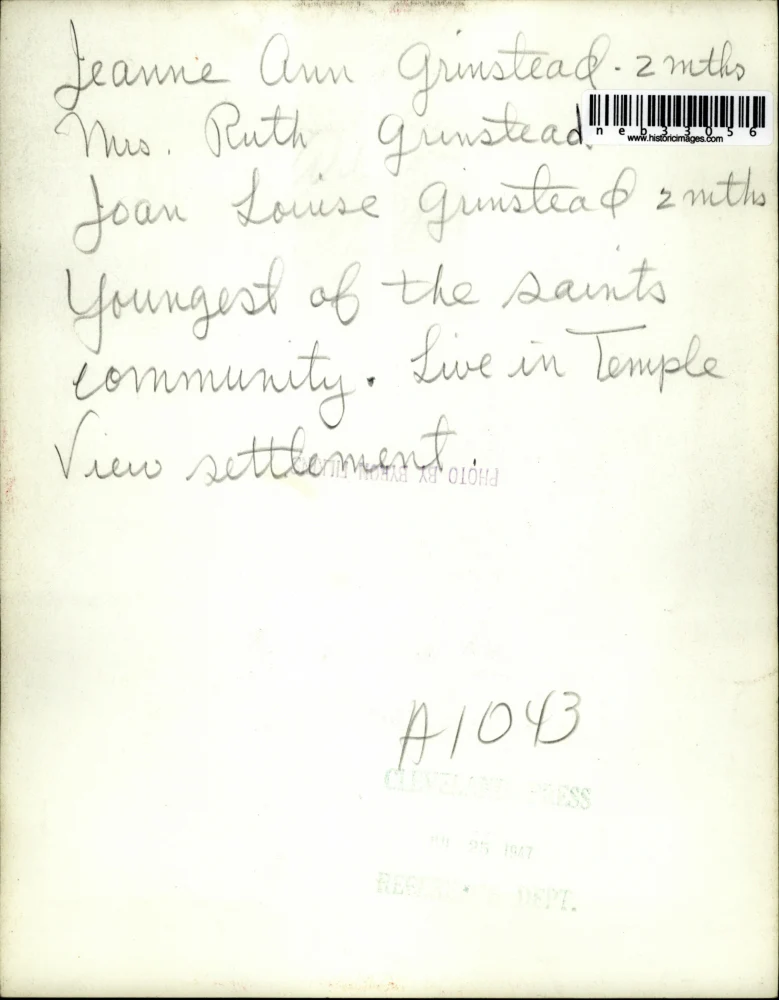 Jeanne Ann Grinstead - 2 mths
Mrs. Ruth Grinstead
neb33056
www.historicimages.com
Joan Louise Grinstead 2 mths
Youngest of the saints
community. Live in Temple
View settlement.
PHOTO BY BYRON
A1043
CLEVELAND PRESS
25 1947
REFERENCE DEPT.